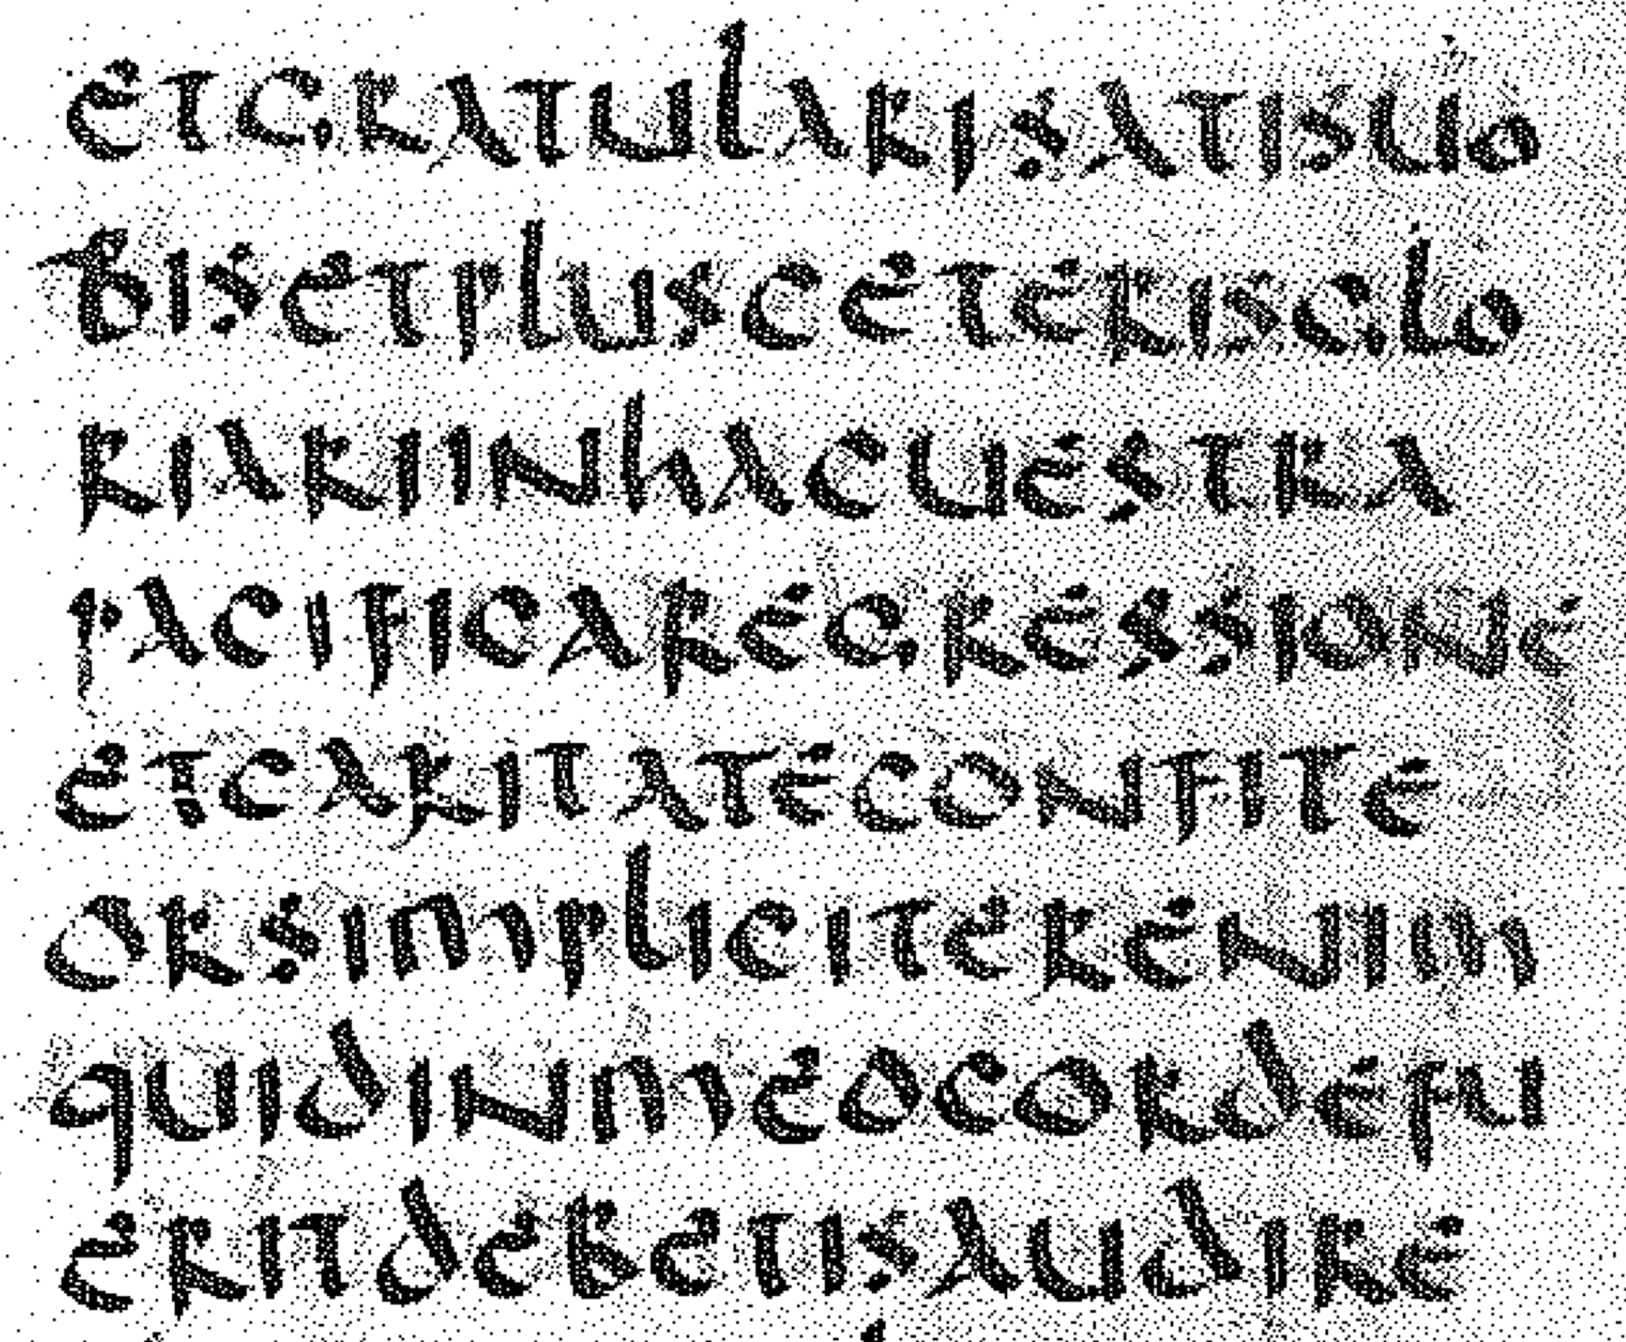 etgratularisatisuo
bisetplusceterisglo
riariinhacuestra
pacificaregressione
etcaritateconfite
orsimpliciterenim
quidinmeocordefu
eritdebetisaudire